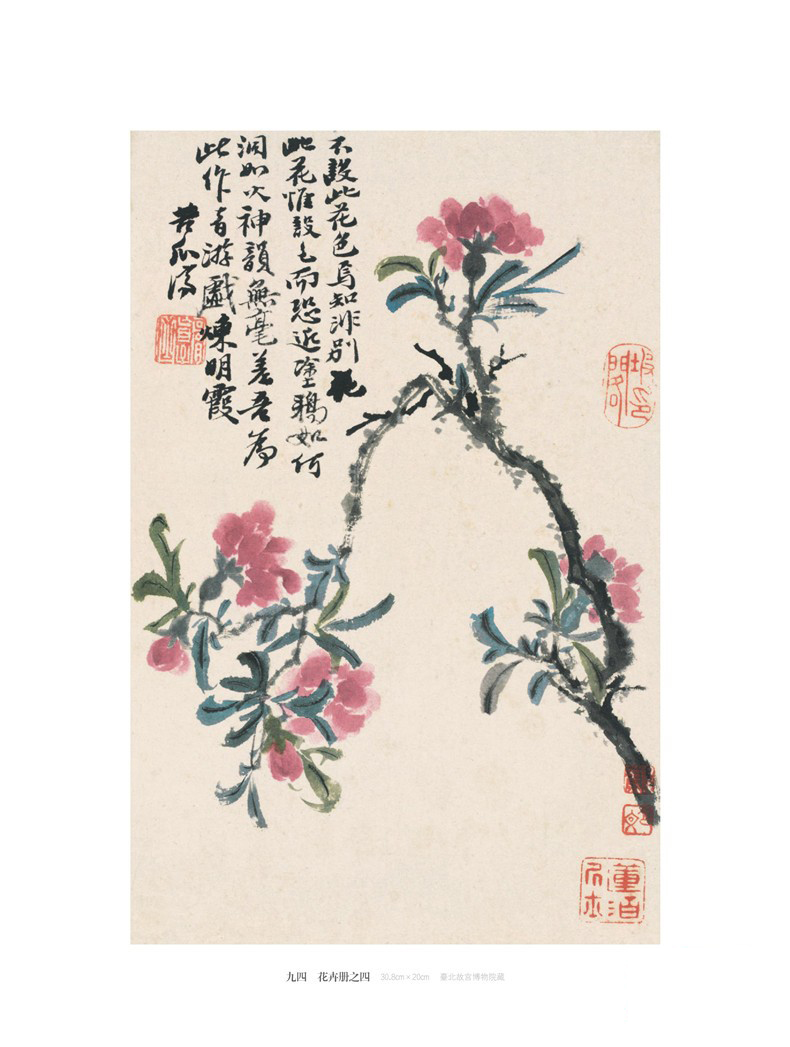 不設此花色焉知非別花
此花惟設色而恐近塗鴉如何
潤如火神韻無毫差吾為
此作者游戲煉明霞
苦瓜濟
董洎
九四 花卉册之四 30.8cm×20cm 臺北故宮博物院藏